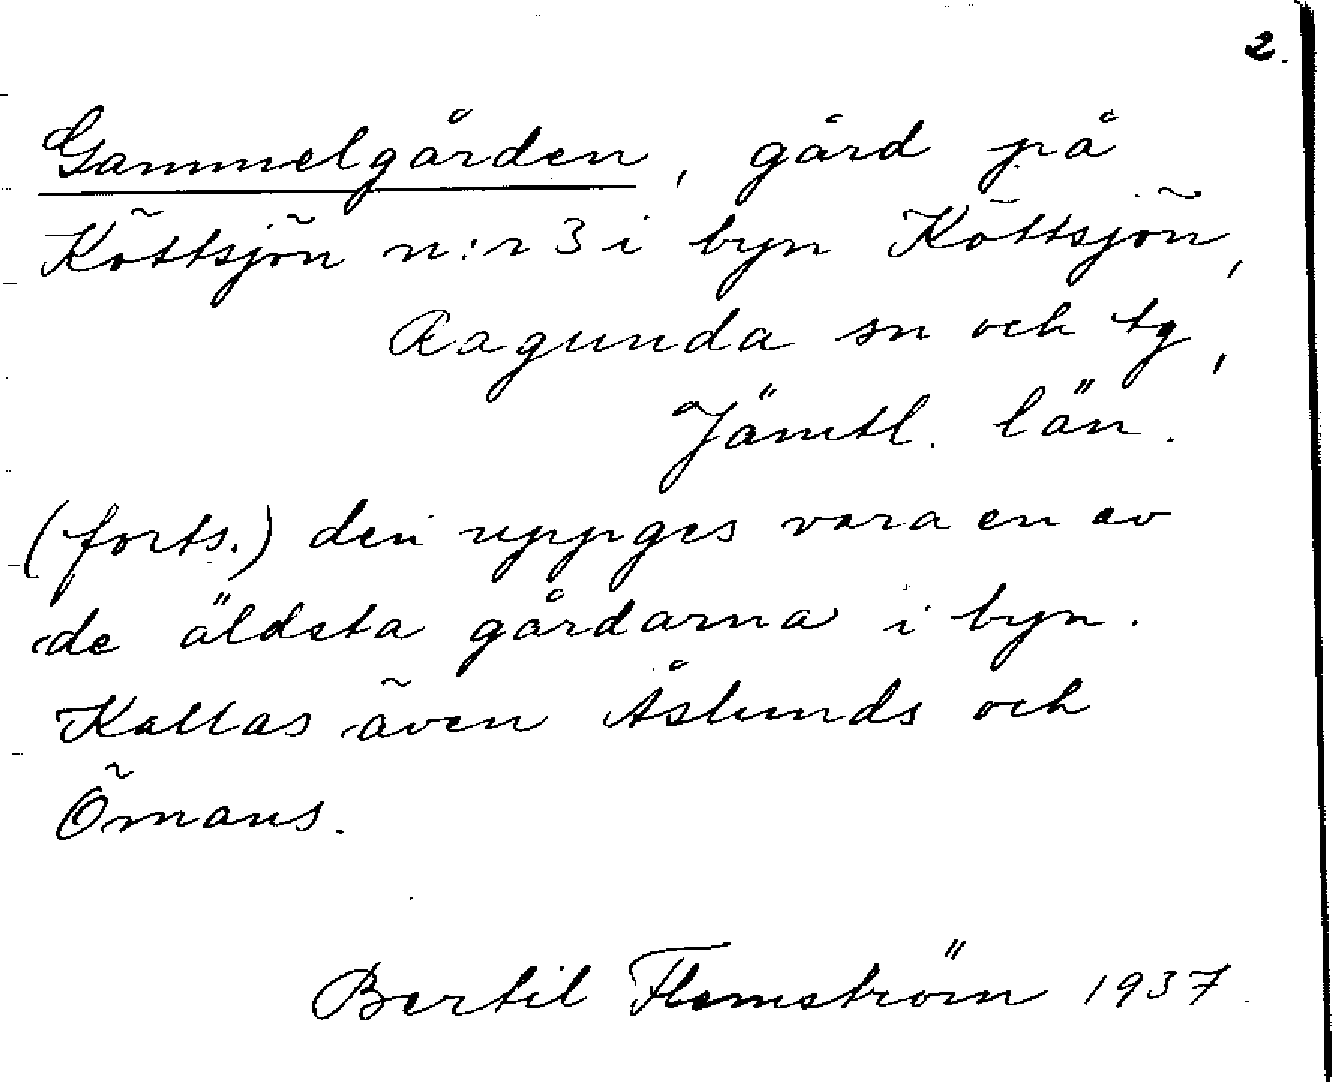 2.
Gammelgården, gård på
Köttsjön n:r 3 i byn Köttsjön,
Ragunda sn och tg,
Jämtl. län.
(forts.) den uppges vara en av
de äldsta gårdarna i byn.
Kallas även Åslunds och
Ömans.
Bertil Flemström 1937.